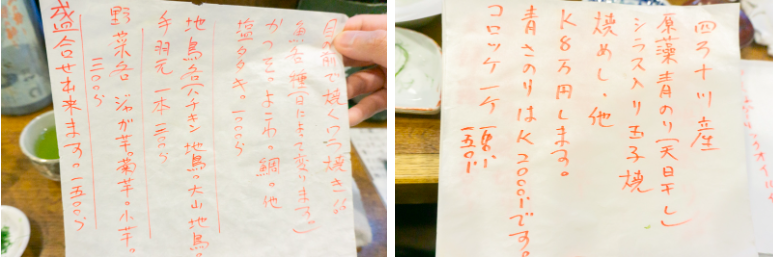 目の前で焼くワラ焼きは
魚各種(日に依って変ります。)
かつを。よこわ。鯛。他
塩タタキ。一〇〇〇
地鳥各(ハチキン地鳥。大山地鳥。
手羽元一本三〇〇
野菜各ジャガ芋。菊芋。小芋。
三〇〇
盛合せ出来ます。一五〇〇
四万十川産
(原藻青のり(天日干し)
シラス入り玉子焼
焼めし、他
K8万円します。
青さのりはK2000です。
コロッケ一ケ
一五〇